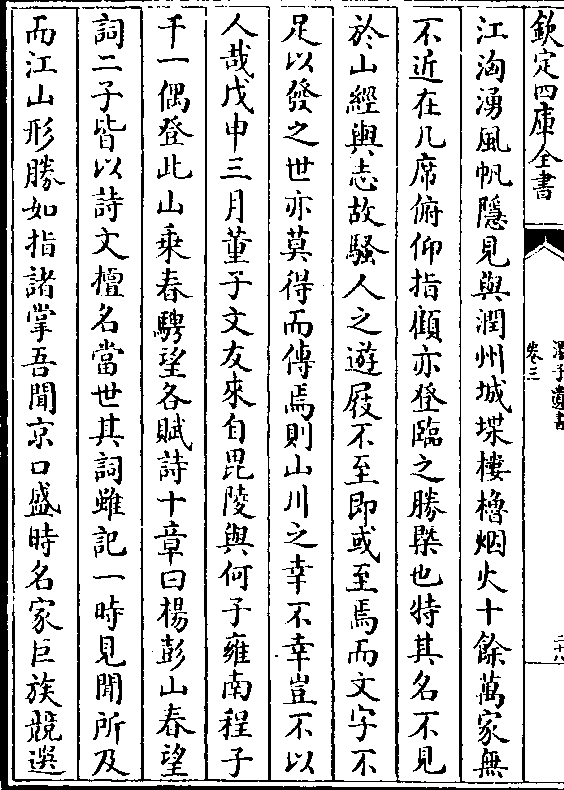 欽定四庫全書
卷三
江洶湧風帆隱見與潤州城堞樓櫓烟火十餘萬家無
不近在几席俯仰指顧亦登臨之勝槩也特其名不見
於山經輿志故騷人之遊屐不至即或至焉而文字不
足以發之世亦莫得而傳焉則山川之幸不幸豈不以
人哉戊申三月董子文友來自毘陵與何子雍南程子
千一偶登此山乘春騁望各賦詩十章曰楊彭山春望
詞二子皆以詩文檀名當世其詞雖記一時見聞所及
而江山形勝如指諸掌吾聞京口盛時名家巨族競選